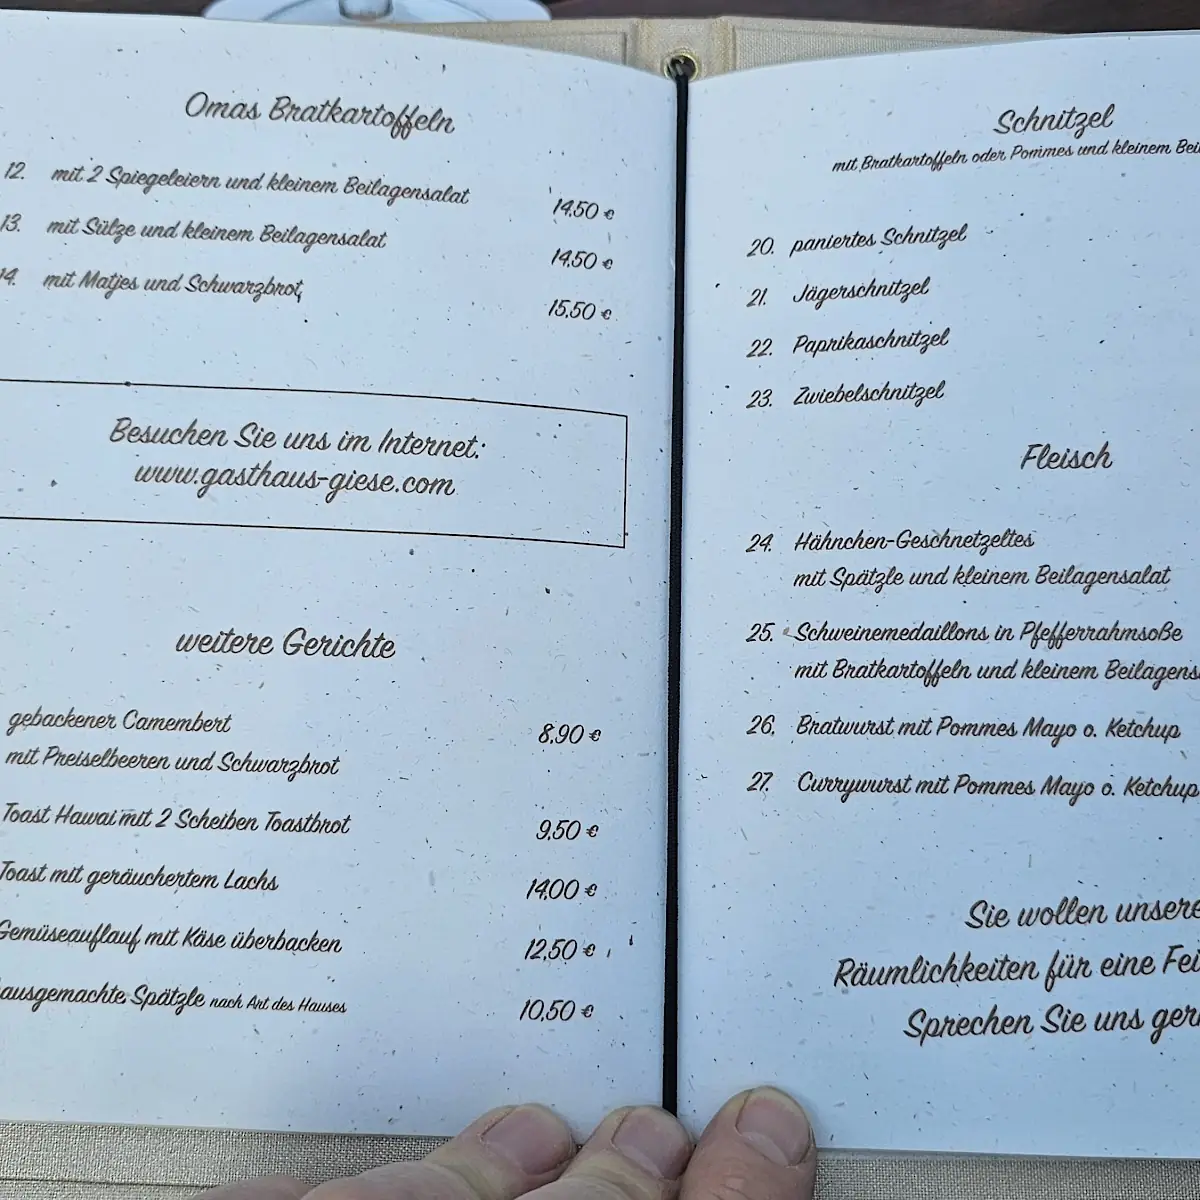 Omas Bratkartoffeln
12. mit 2 Spiegeleiern und kleinem Beilagensalat 14,50 €
13. mit Sülze und kleinem Beilagensalat 14,50 €
14. mit Matjes und Schwarzbrot 15,50 €
Besuchen Sie uns im Internet:
www.gasthaus-giese.com
weitere Gerichte
gebackener Camembert 8,90 €
mit Preiselbeeren und Schwarzbrot
Toast Hawai mit 2 Scheiben Toastbrot 9,50 €
Toast mit geräuchertem Lachs 14,00 €
Gemüseauflauf mit Käse überbacken 12,50 €
ausgemachte Spätzle nach Art des Hauses 10,50 €
Schnitzel
mit Bratkartoffeln oder Pommes und kleinem
20. paniertes Schnitzel
21. Jägerschnitzel
22. Paprikaschnitzel
23. Zwiebelschnitzel
Fleisch
24. Hähnchen-Geschnetzeltes
mit Spätzle und kleinem Beilagensalat
25. Schweinemedaillons in Pfefferrahmsoße
mit Bratkartoffeln und kleinem
26. Bratwurst mit Pommes Mayo o. Ketchup
27. Currywurst mit Pommes Mayo o. Ketchup
Sie wollen unsere
Räumlichkeiten für eine
Sprechen Sie uns